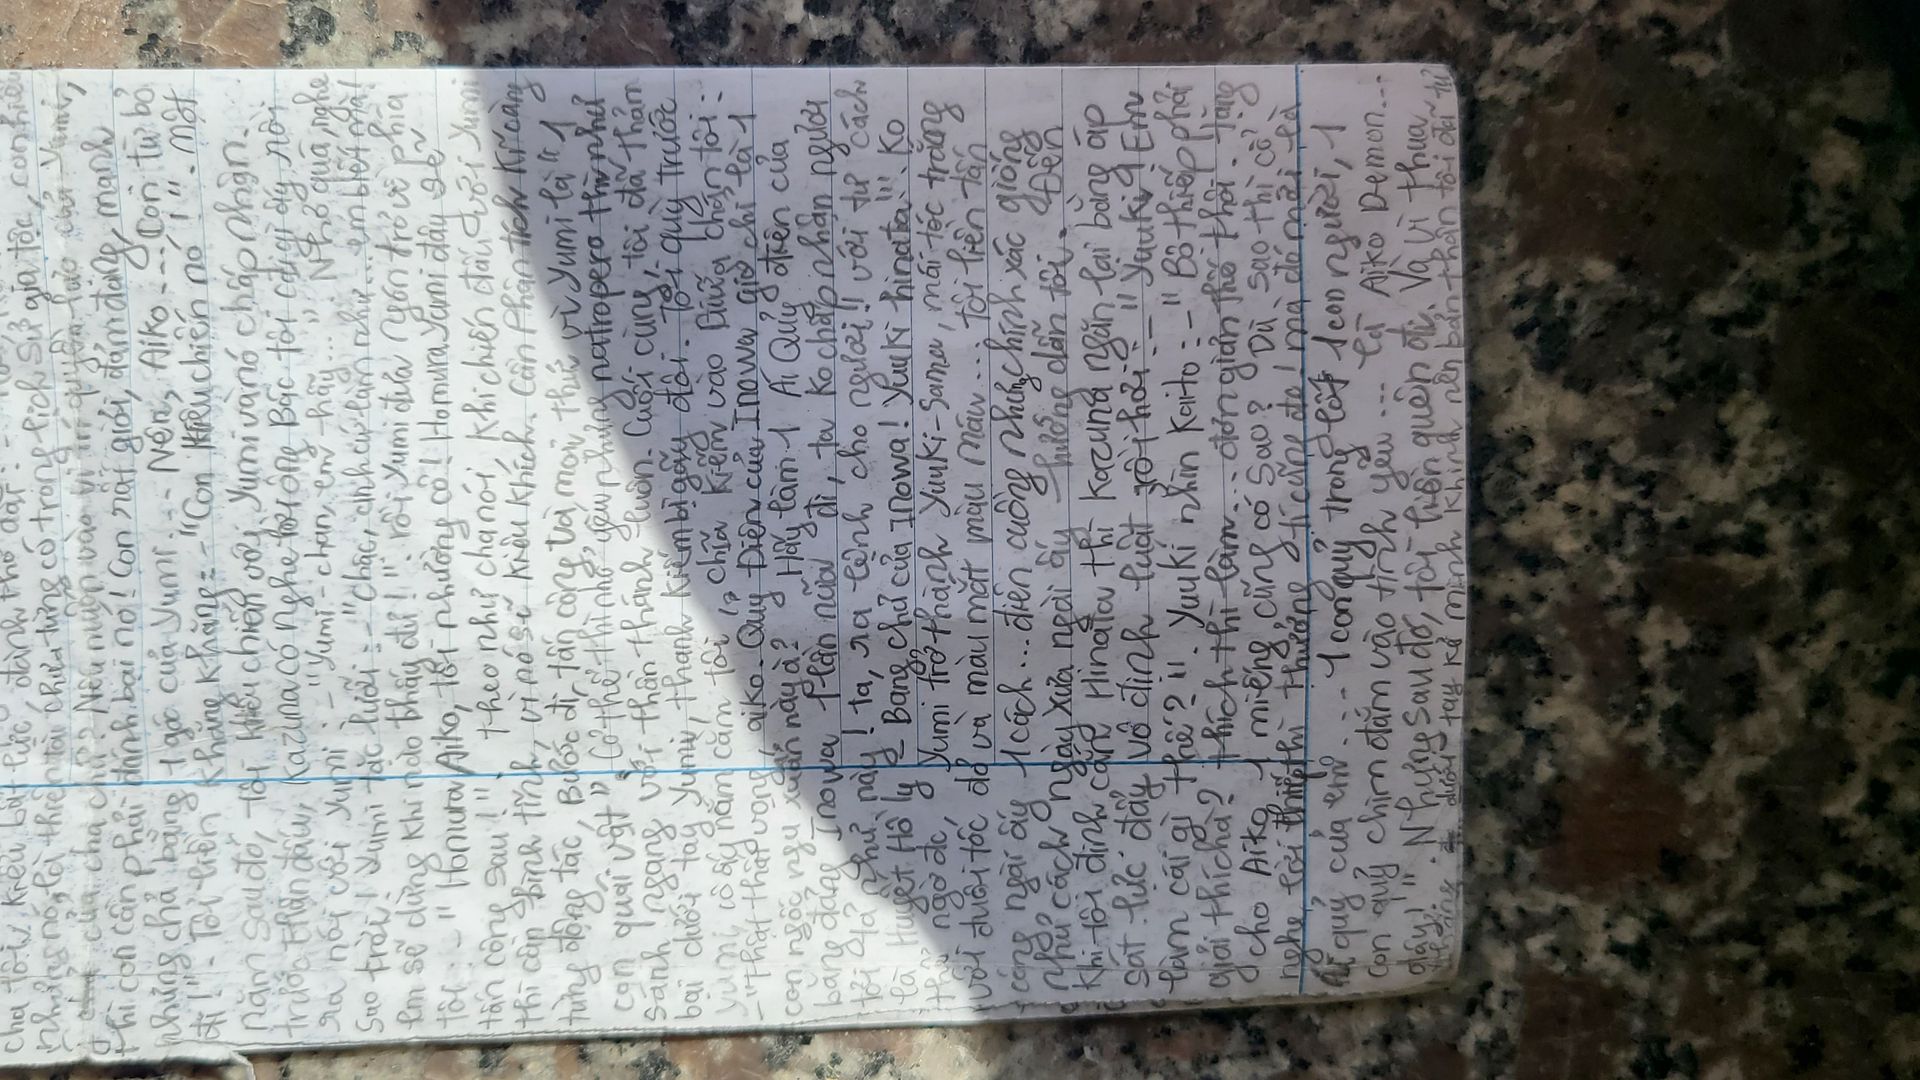 cha tôi k hiểu bất lực đánh thở dài: -
nhưng nó, là thiên tài chưa từng có trong lịch sử gia tộc, con hiểu
của cha chứ? Nếu nhìn vào vì mà quyền lực của Yumi,
thì con cần phải đánh bại nó! Con rất giỏi, đảm đang, mạnh
nhưng chả bằng 1 góc của Yumi... Nên, Aiko... Con từ bỏ
đi!". Tôi liền khẳng: - "Con khiêu chiến nó!". Một
năm sau đó, tôi khiêu chiến với Yumi và nó chấp nhận.
trước thần đấu, Kazuna có nghe hỏi ông Bắc tôi cái gì ấy rồi
ra nói với Yumi: - "Yumi-chan, em hãy..." Nhỏ quá, nghe
sao trời! Yumi tắc lưỡi: - "chậc, anh cứ làm như... em biết mà!
Em sẽ dừng khi nào thấy đủ!" rồi Yumi đưa ngón trỏ về phía
tôi - "Homura Aiko, tôi nhường cô! Homura Yumi đây sẽ
tấn công sau!" Theo như cha nói, khi chiến đấu với Yumi
thì cần bình tĩnh, vì nó sẽ kiêu khích. Cần phân tích kĩ càng
từng động tác, bước đi, tấn công và mọi thứ vì Yumi là 1
con quái vật" Có thể thì nhỏ yếu nhưng natropera thì như
sánh ngang với thần thánh luôn. Cuối cùng, tôi đã thảm
bại dưới tay Yumi, thanh kiếm bị gãy đôi. Tôi quỳ trước
Yumi, cô ấy nắm cằm tôi, chĩa kiếm vào dưới chân tôi:
- "Thật thất vọng, Aiko. Quỷ Điên của Inowa giờ chỉ là 1
con ngốc ngu xuẩn này à? Hãy làm 1 Ái Quỷ điên của
băng đảng Inowa lần nữa đi, ta ko chấp nhận ngươi
tôi tả như này! Ta, ra lệnh cho ngươi! với tư cách
là Huyết Hồ ly Bang chủ của Inowa! Yuuki hinata". Ko
thể ngờ đc, Yumi trở thành Yuuki-Sama, mái tóc trắng
với đuôi tóc đỏ và màu mắt màu máu... Tôi liên tấn
công ngài ấy 1 cách... điên cuồng nhưng chính xác giống
như cách ngày xưa ngài ấy hướng dẫn tôi. Đến
khi tôi định cắn Hinata thì Kazuna ngăn lại bằng áp
sát lực đẩy vô định luật rồi hỏi: - "Yuuki, Em
làm cái gì thế?". Yuuki nhìn Kaito: - "Bộ thiếp phải
giải thích à? Thích thì làm... đơn giản thế thôi. Tặng
cho Aiko 1 miếng, cũng có sao? Dù sao thì cổ
nghe lời thiếp thì thưởng tí cũng đc! mà đó mới là
Ái quỷ của em: - 1 con quỷ trong lốt 1 con người, 1
con quỷ chìm đắm vào tình yêu... là Aiko Demon...
đấy!" Nhưng sau đó, tôi liền quên đi. Và vì thua
dưới tay kẻ mình khinh nên bản thân tôi đã tử